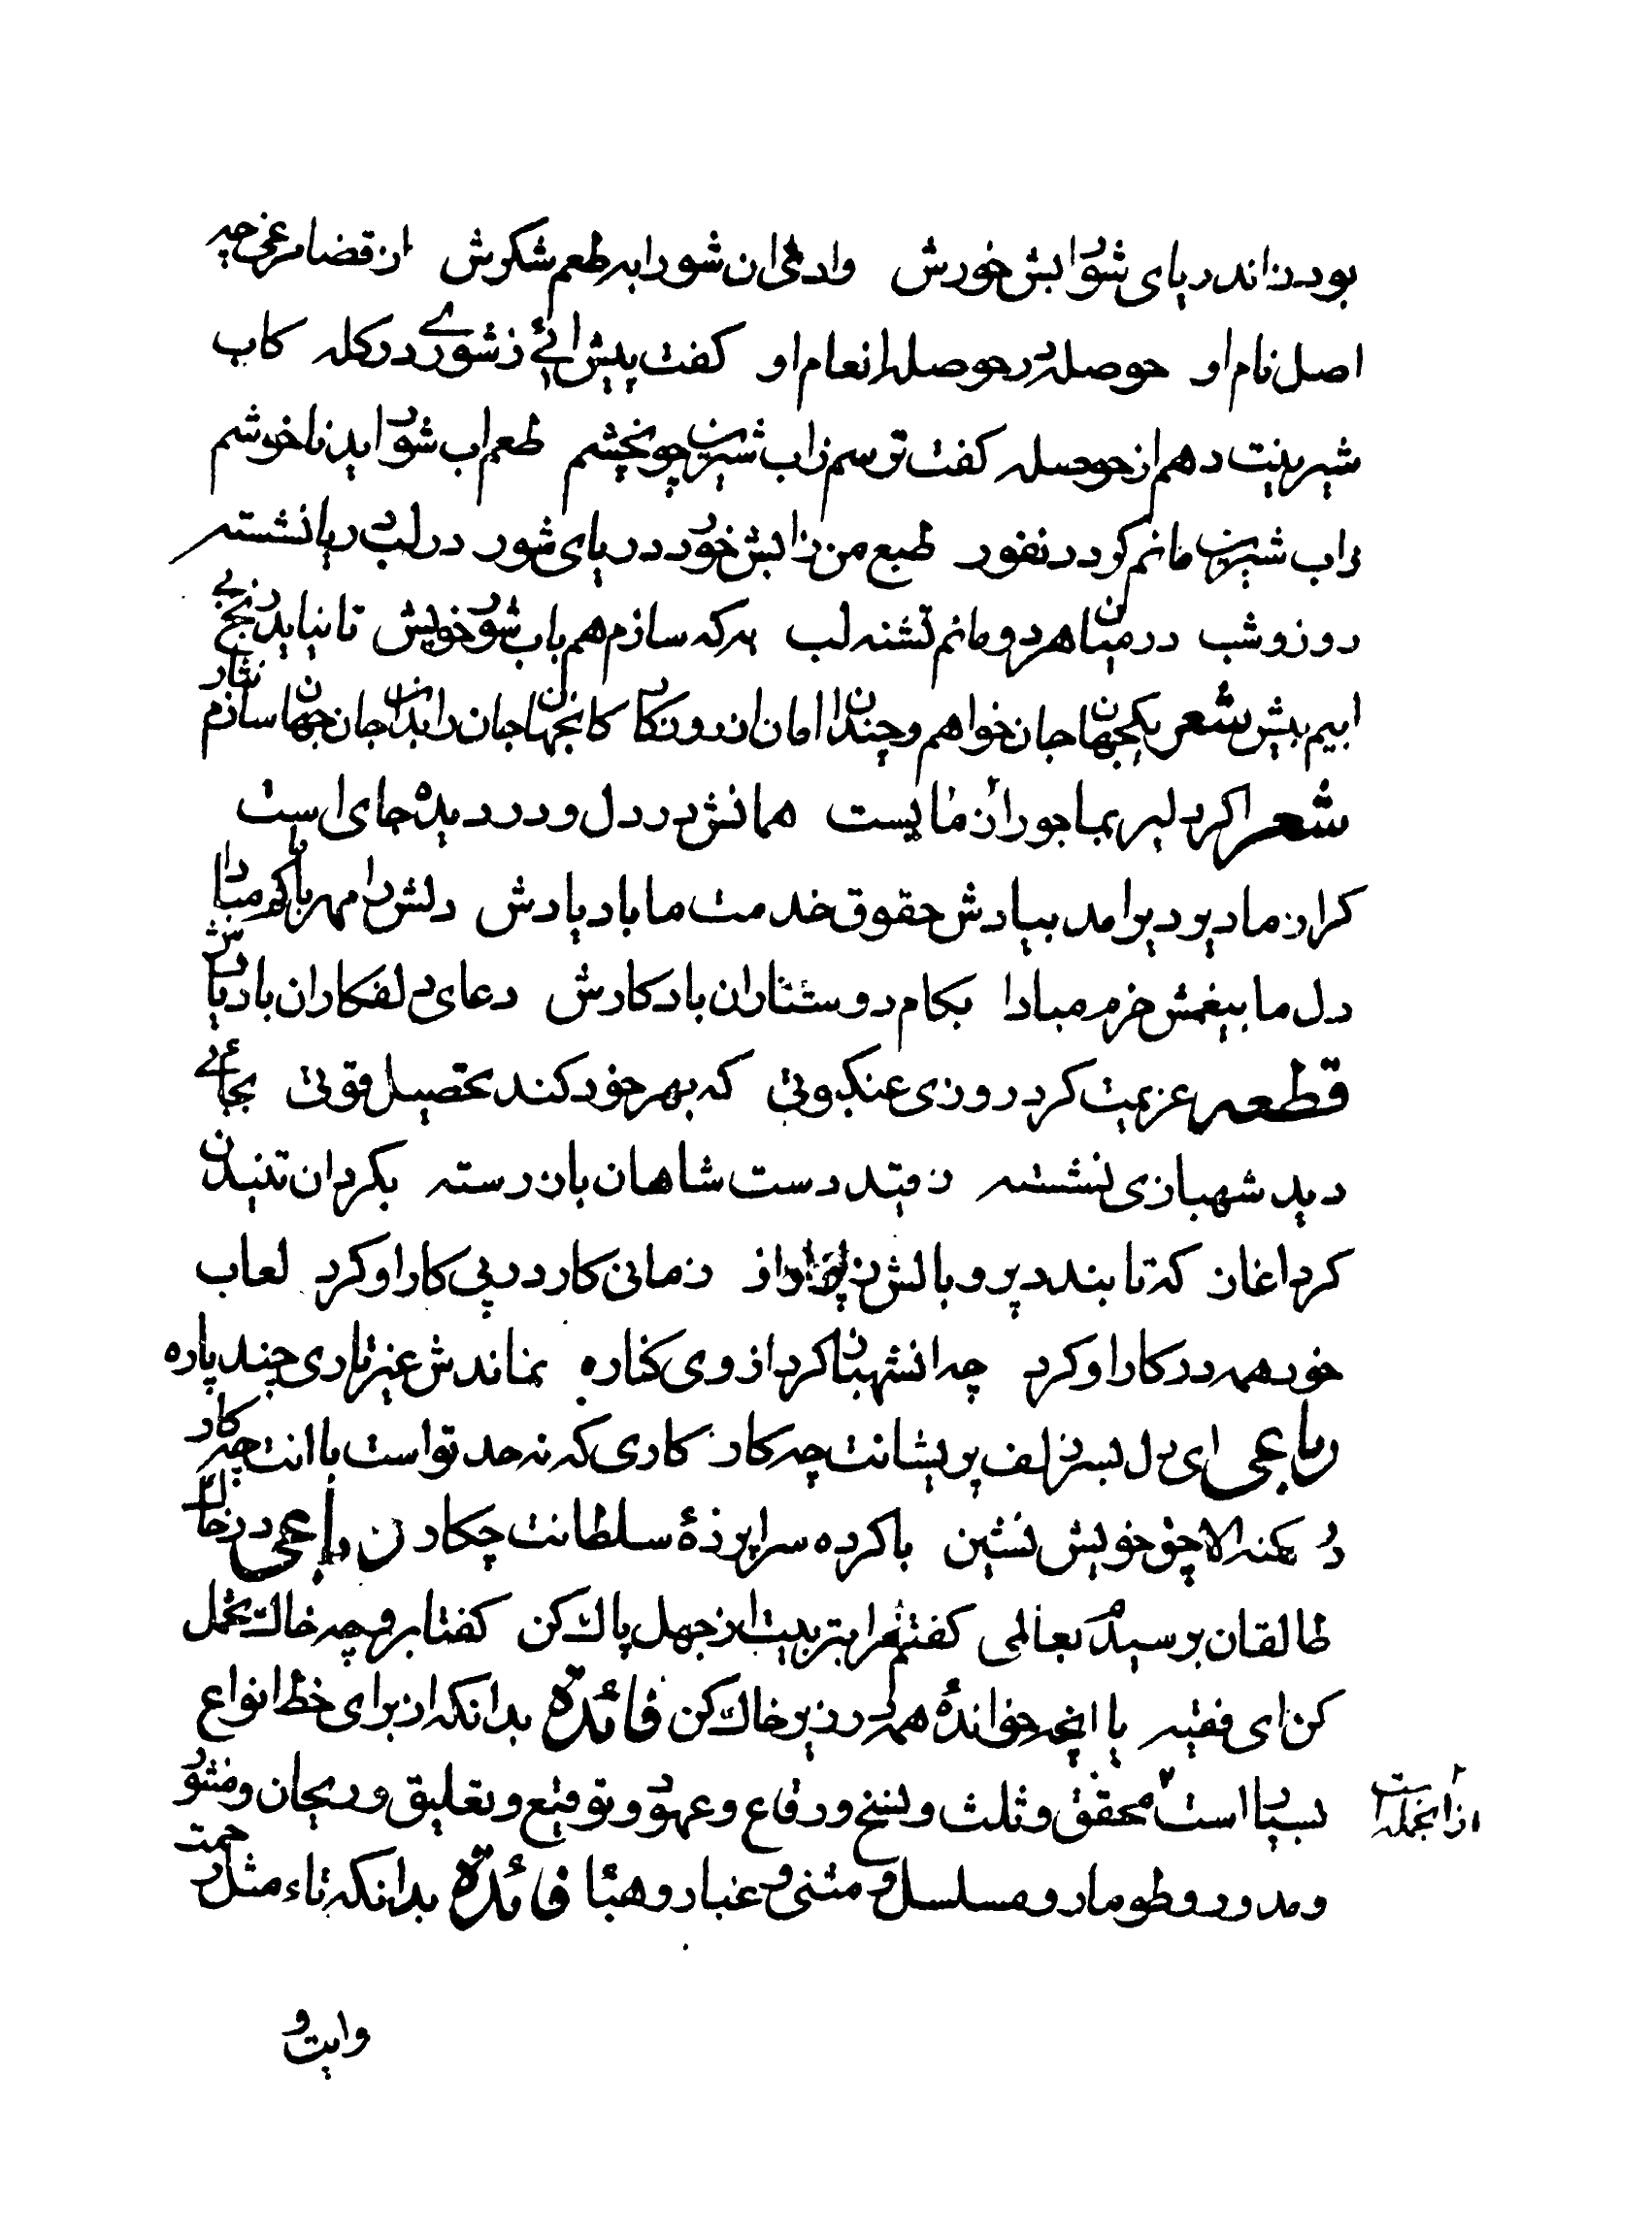 بود زاندریای شور ابش خورش وادی ان شور را به طعم شکرش از قضا مرغی چه
اصل نام او حوصله بر حوصله انعام او گفت پیش ائے ز شورے در گله کاب
شیرینت دهم از حوصله گفت ترسم زاب شیرین چون چشم طعم اب شور اید ناخوشم
زاب شیرین مانم گردد نفور طبع من زابش خور دریای شور در لب دریا نشسته
روز و شب در میان هر دو مانم تشنه لب به که سازم هم باب شور خویش تا نیاید رنج بے
ابیم پیش شعر یکجهان جان خواهم و چندان امان از روزگار کانجهان جان را بدان جان جهان سازم نثار
شعر اگر دلبر بما جور ازمایست همانش در دل و در دیده جای است
گر از ما دیر دیر امد بیادش حقوق خدمت ما باد یادش دلش را مهر با کم مبادا
دل ما بیغمش خرم مبادا بکام دوستداران باد کارش دعای دلفکاران باد یارش
قطعه عزیمت کرد روزی عنکبوتی که بهر خود کند تحصیل قوتی بجائے
دید شهبازی نشسته ز قید دست شاهان باز رسته بگرد ان تنیدن
کرد اغاز که تا بندد پر و بالش ز پرواز زمانی کار در پی کار او کرد لعاب
خود همه در کار او کرد چه انشهباز کرد از وی کناره نماندش غیر تاری چند پاره
رباعی ای دل بسر زلف پریشانت چه کار کاری که نه حد تو است با انت چه کار
در کهنه الاچق خویش نشین با کرده سراپردۀ سلطانت چکار رباعی در خاک
طالقان برسیدم بعالمی گفتم مرا بتربیت از جهل پاک کن گفتا برو چه خاک تحمل
کن ای فقیه یا انچه خواندۀ همه در زیر خاک کن فائدة بدانکه از برای خط انواع
بسیار است محقق و ثلث و نسخ و رقاع و عهود و توقیع و تعلیق و ریحان و منثور
از انجمله است
و مدور و طومار و مسلسل و مثنی و غبار و هبا فائدة بدانکه تاء مثل رحمت
وابیت و